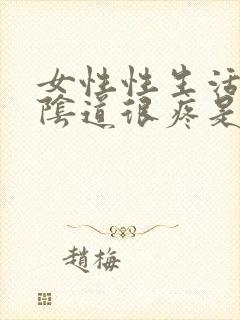 女性性生活
陰道很疼是
趙梅